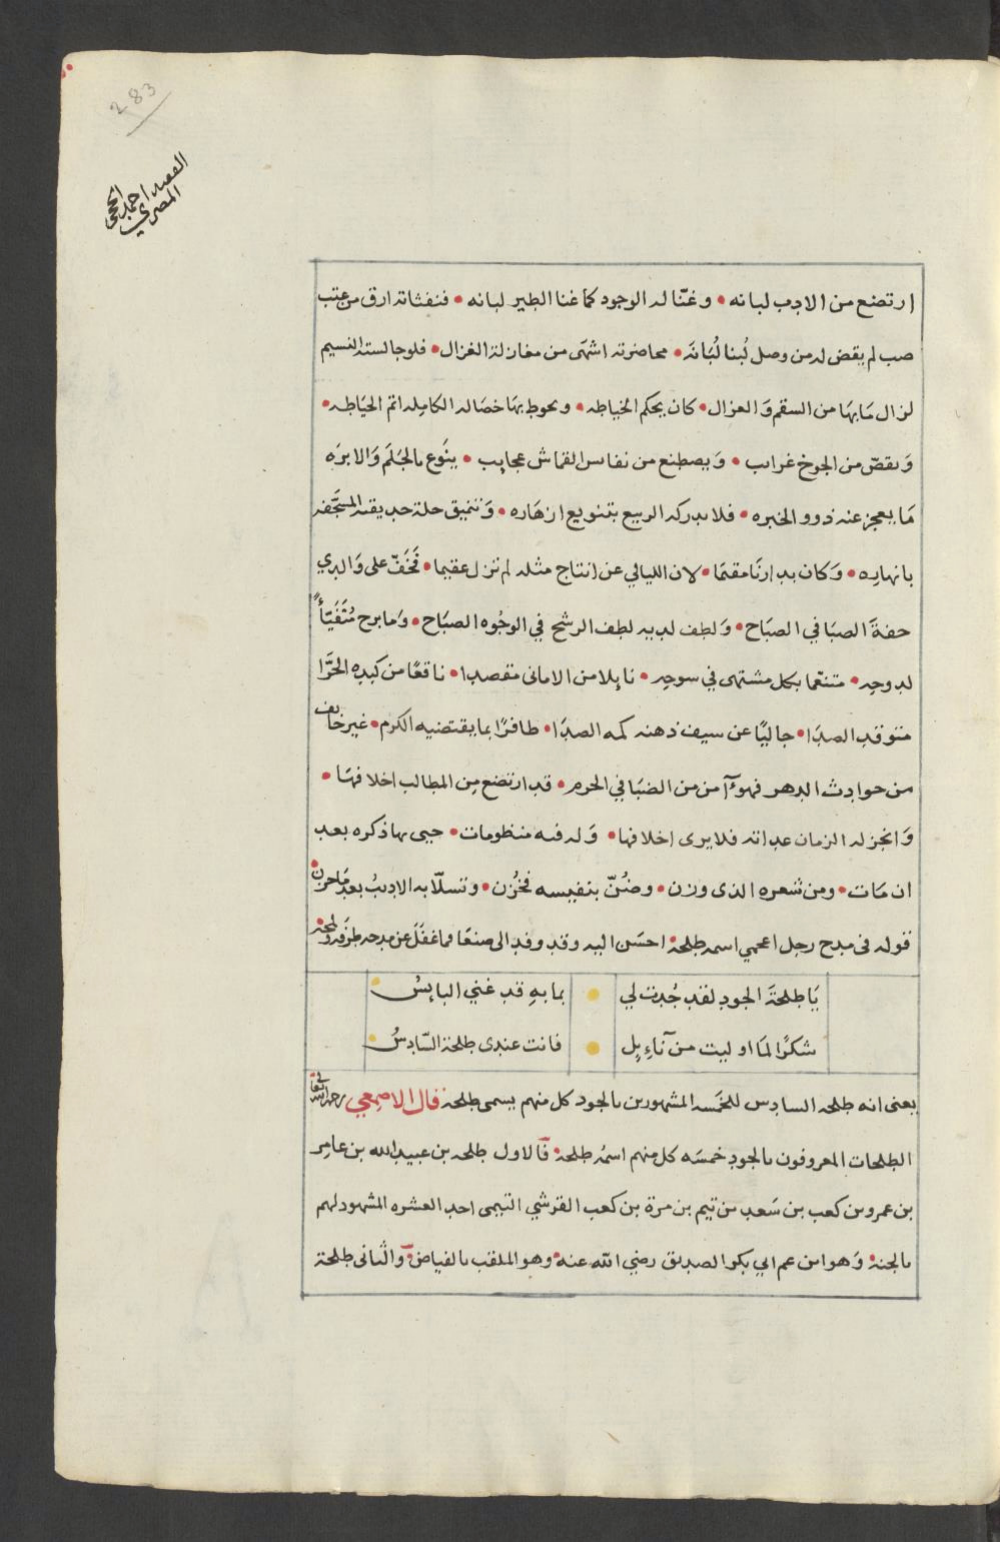 283
الفقيه احمد الحجي
المصري
ارتضع من الادب لبانه • وغنّا له الوجود كما غنا الطير لبانه • فنفثاته ارق من عتب
صب لم يقض له من وصل لُبنا لُبَانَه • محاضرته اشهَى من مغازلة الغزال • فلو جالسته النسيم
لزال مَا بهَا من السقم وَالعزال • كان يحكم الخياطه • ويحوط بهَا خصَاله الكامله اتم الحيَاطه •
وَيقصّ من الجوخ غرايب • وَيصطنع من نفايس القماش عجايب • ينَوع بالجَلَم وَالابرَه
مَا يعجز عنه ذوو الخبره • فلا يدركه الربيع بتنويع ازهَاره • وَتنميق حلة حديقته المسَجَّفه
بانهاره • وَكان بدارنَا مقيمًا • لان الليالي عن انتاج مثله لم تزل عقيما • فَخَفّ على وَالدي
خفةَ الصبَا في الصبَاح • وَلطف لديه لطف الرشح في الوجُوه الصبَاح • وَما برح مُتَفَيّأً
لدوحِه • متنعّما بكل مشتهى في سوحِه • نايلا من الامانى مقصدا • ناقعًا من كبدِه الحَرَّا
متوقد الصدَا • جاليًا عن سيف ذهنه كمه الصدَا • ظافرًا بما يقتضيه الكرم • غير خايف
من حوادث الدهر فهوَ آمن من الضبَا في الحرم • قد ارتضع من المطالب اخلافهَا •
وَانجز له الزمان عداته فلا يرى اخلافها • وَله فيه منظومات • حيى بها ذكره بعد
ان مَات • ومن شعره الذى وزن • وضُنّ بنفيسه فخُزن • وتسلّا به الاديبُ بعد مَا حزن •
قوله فى مدح رجل اعجمي اسمه طلحة • احسَن اليه وقد وفد الى صنعَا فما غفَلَ عن مدحه طرفه ولمحَة •
يَا طلحَةَ الجودِ لقد جُدت لي • بما بهِ قد غني البايسُ •
شكرًا لمَا اوليت من آناءِيل • فانت عندى طلحة السّادسُ •
يعنى انه طلحه السادِس للخَمسه المشهورين بالجود كل منهم يسمى طلحه قال الاصمعي رحمه الله تعالى
الطلحات المعروفون بالجودِ خمسَه كل منهم اسمُه طلحة • فَالاول طلحه بن عبيدالله بن عامِر
بن عمرو بن كعب بن سَعد بن تيم بن مرة بن كعب القرشي التيمى احد العشره المشهود لهم
بالجنة • وَهو ابن عم ابي بكر الصديق رضي الله عنه • وهو الملقب بالفياض • وَالثانى طلحة